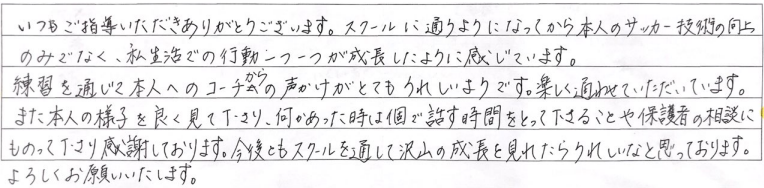 いつもご指導いただきありがとうございます。スクールに通うようになってから本人のサッカー技術の向上
のみでなく、私生活での行動一つ一つが成長したように感じています。
練習を通じて本人へのコーチからの声かけがとてもうれしいようです。楽しく通わせていただいています。
また本人の様子を良く見て下さり、何かあった時は個で話す時間をとって下さることや保護者の相談に
ものって下さり感謝しております。今後ともスクールを通して沢山の成長を見れたらうれしいなと思っております。
よろしくお願いいたします。